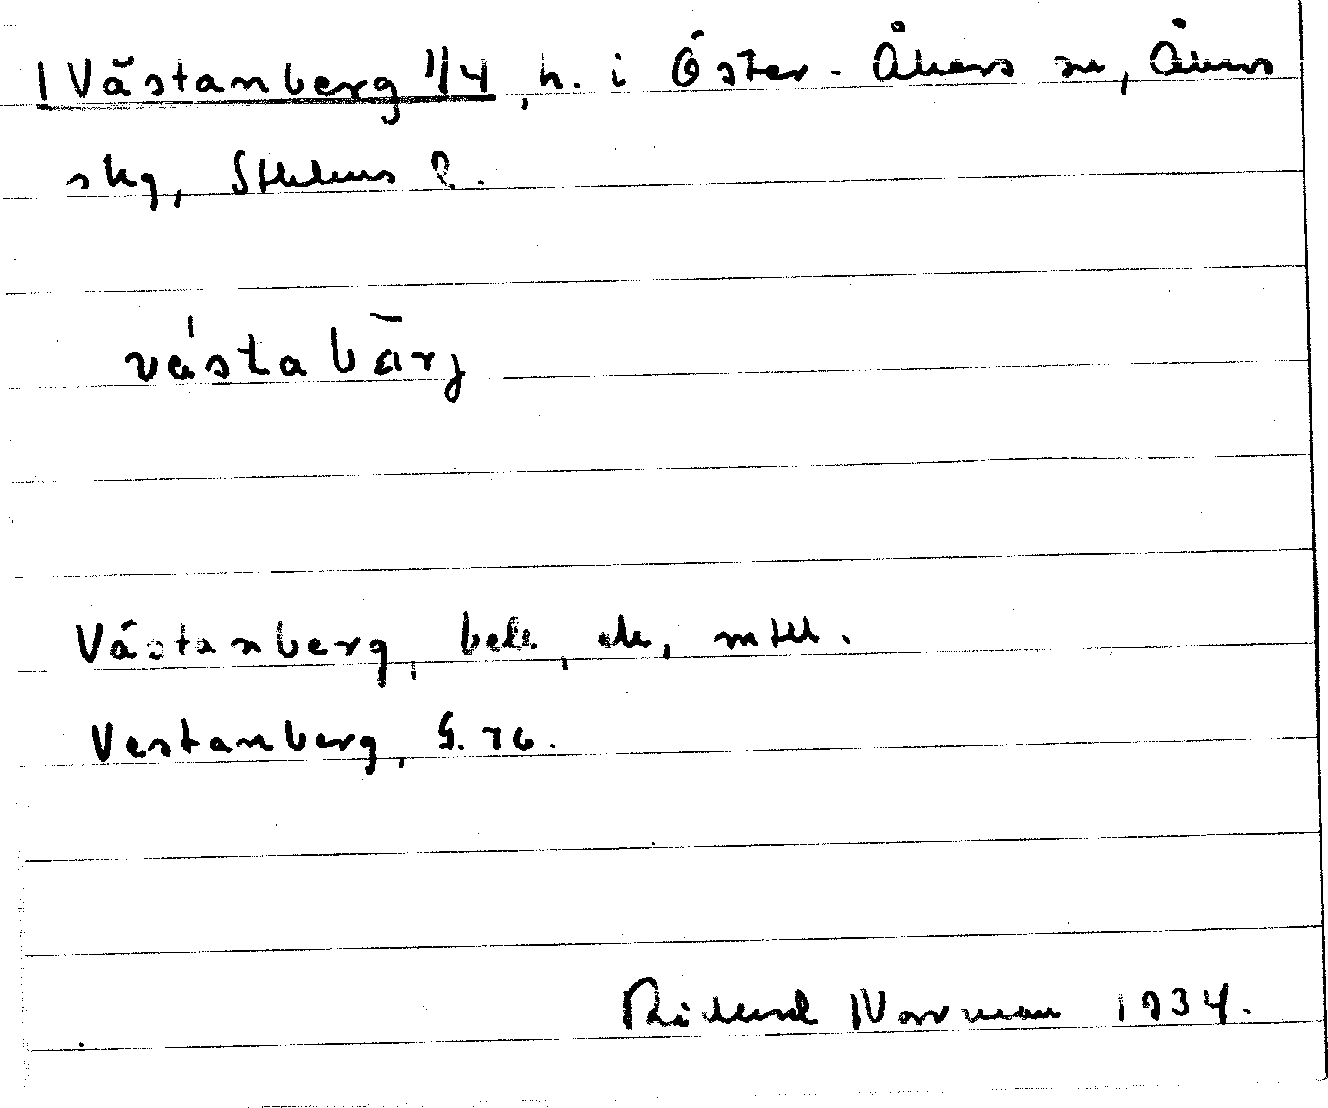 1 Västanberg 1/4, h. i Öster-Åkers sn, Åkers
skg, Sthlms l.
västabärj
Västanberg, bebi, ek, mtll.
Vestanberg, G. 76.
Rickard Norrman 1934.